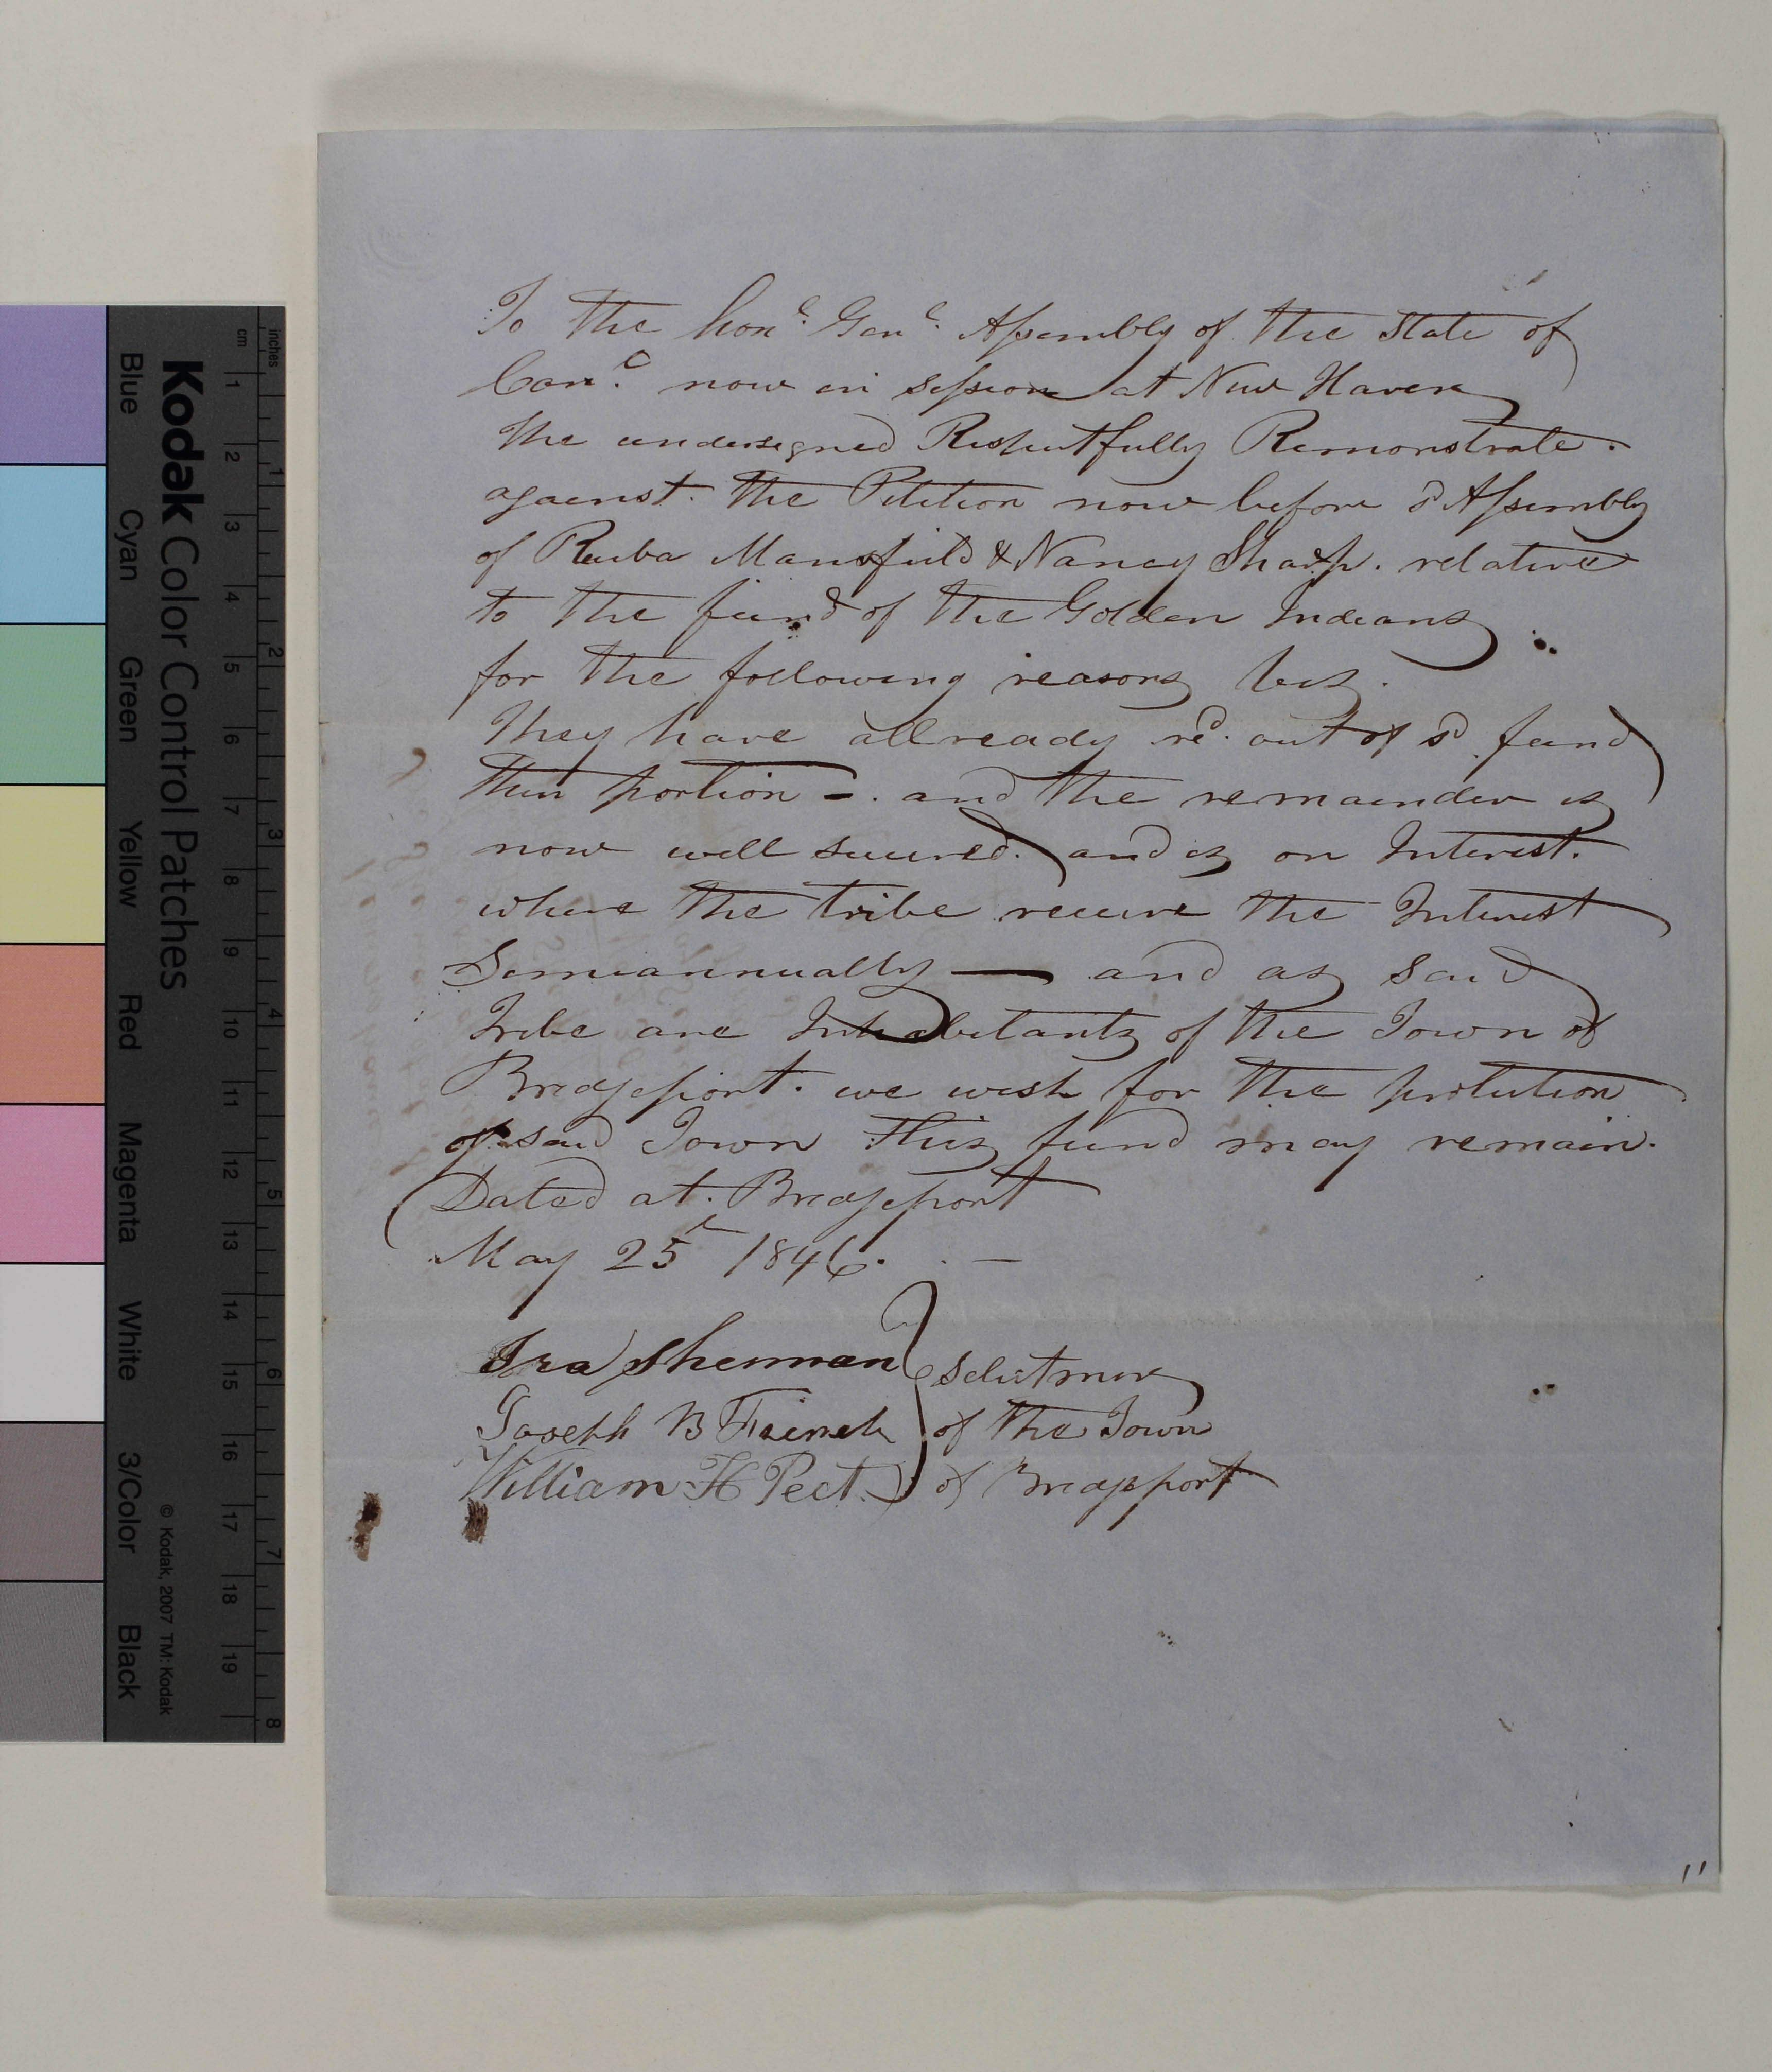 To the hon.l Gen.l Assembly of the State of
Con.c now in session at New Haven
The undersigned Respectfully Remonstrate.
against the Petition now before sd Assembly
of Ruba Mansfield & Nancy Sharp. relative
to the fund of the Golden Indians
for the following reasons viz.
They have allready red. out of sd fund
their portion -. and the remainder is
now well secured. and is on Interest.
where the tribe receive the Interest
Semiannually — and as said
Tribe are Inhabitants of the Town of
Bridgeport. we wish for the protection
of said Town this fund may remain.
Dated at Bridgeport
May 25 1846. —
Ira Sherman } Selectmen
Joseph B French } of the Town
William H Peet. } of Bridgeport
11
Kodak Color Control Patches
© Kodak, 2007 TM: Kodak
Blue Cyan Green Yellow Red Magenta White 3/Color Black
cm 1 2 3 4 5 6 7 8 9 10 11 12 13 14 15 16 17 18 19
inches 1 2 3 4 5 6 7 8